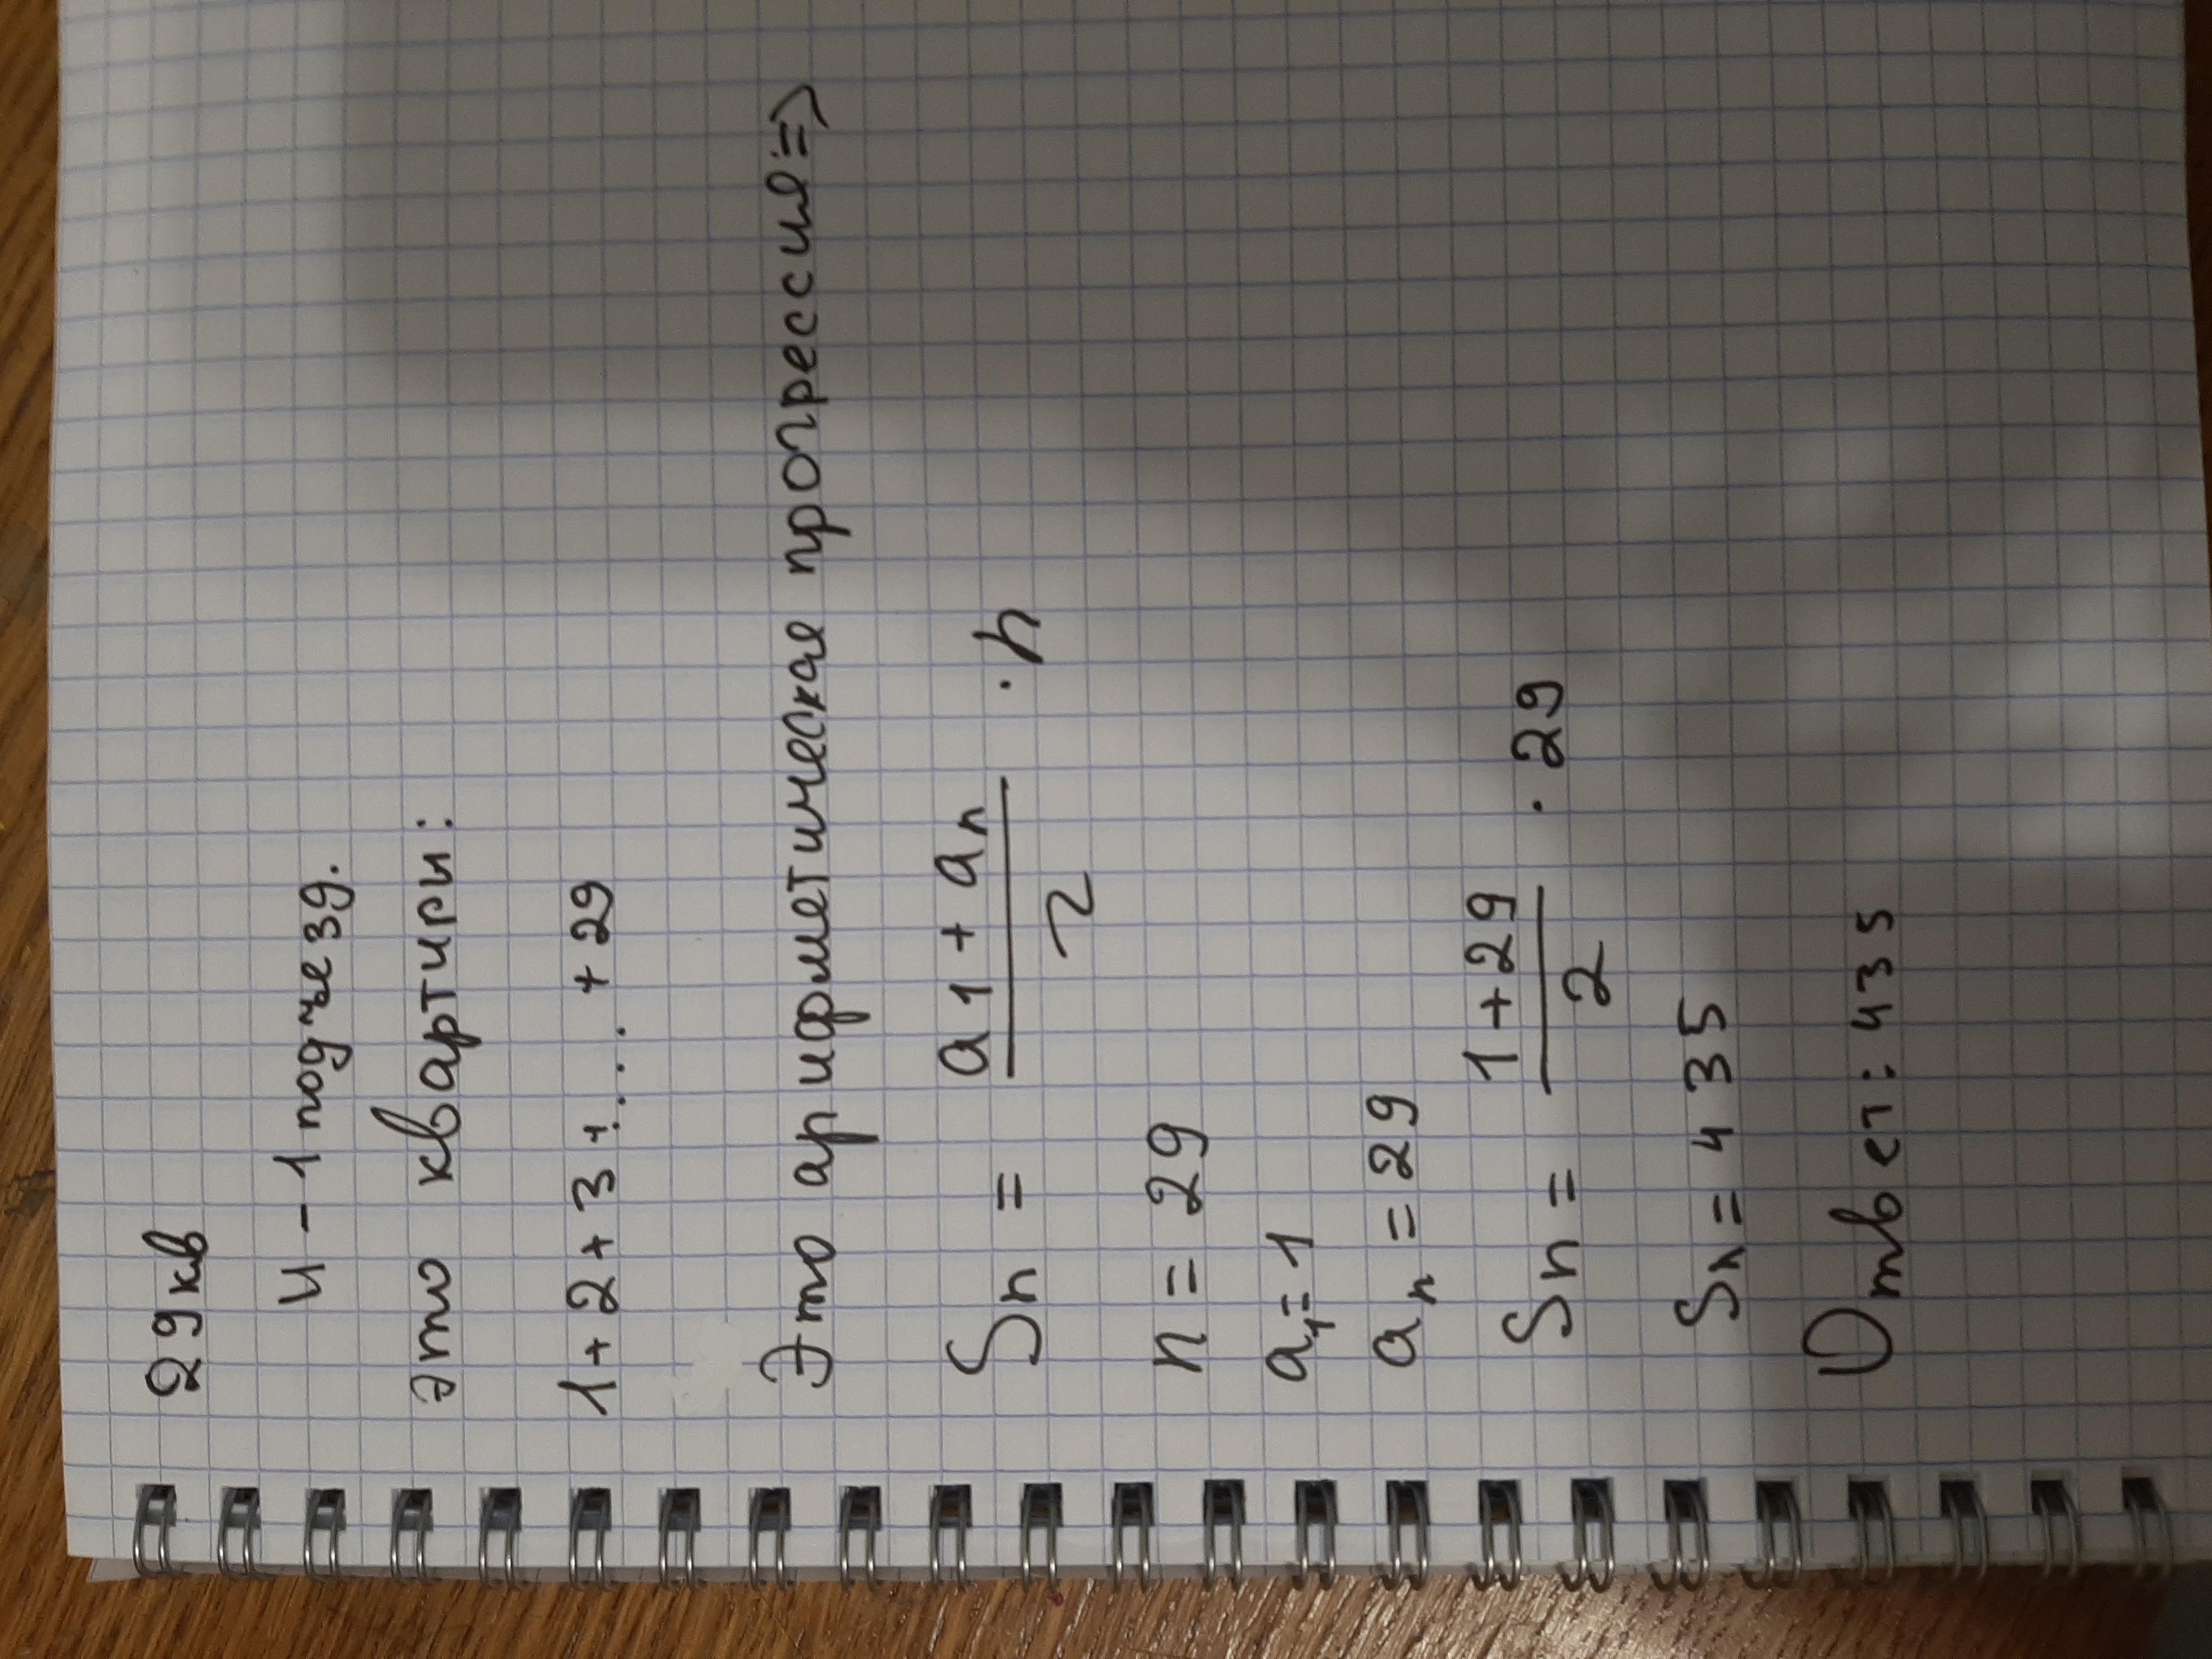 29кв
и - 1 подъезд.
это квартиры:
1+2+3+...+29
Это арифметическая прогрессия=>
Sn = \frac{a1 + an}{2} · n
n = 29
a1 = 1
an = 29
Sn = \frac{1+29}{2} · 29
Sn = 435
Ответ: 435